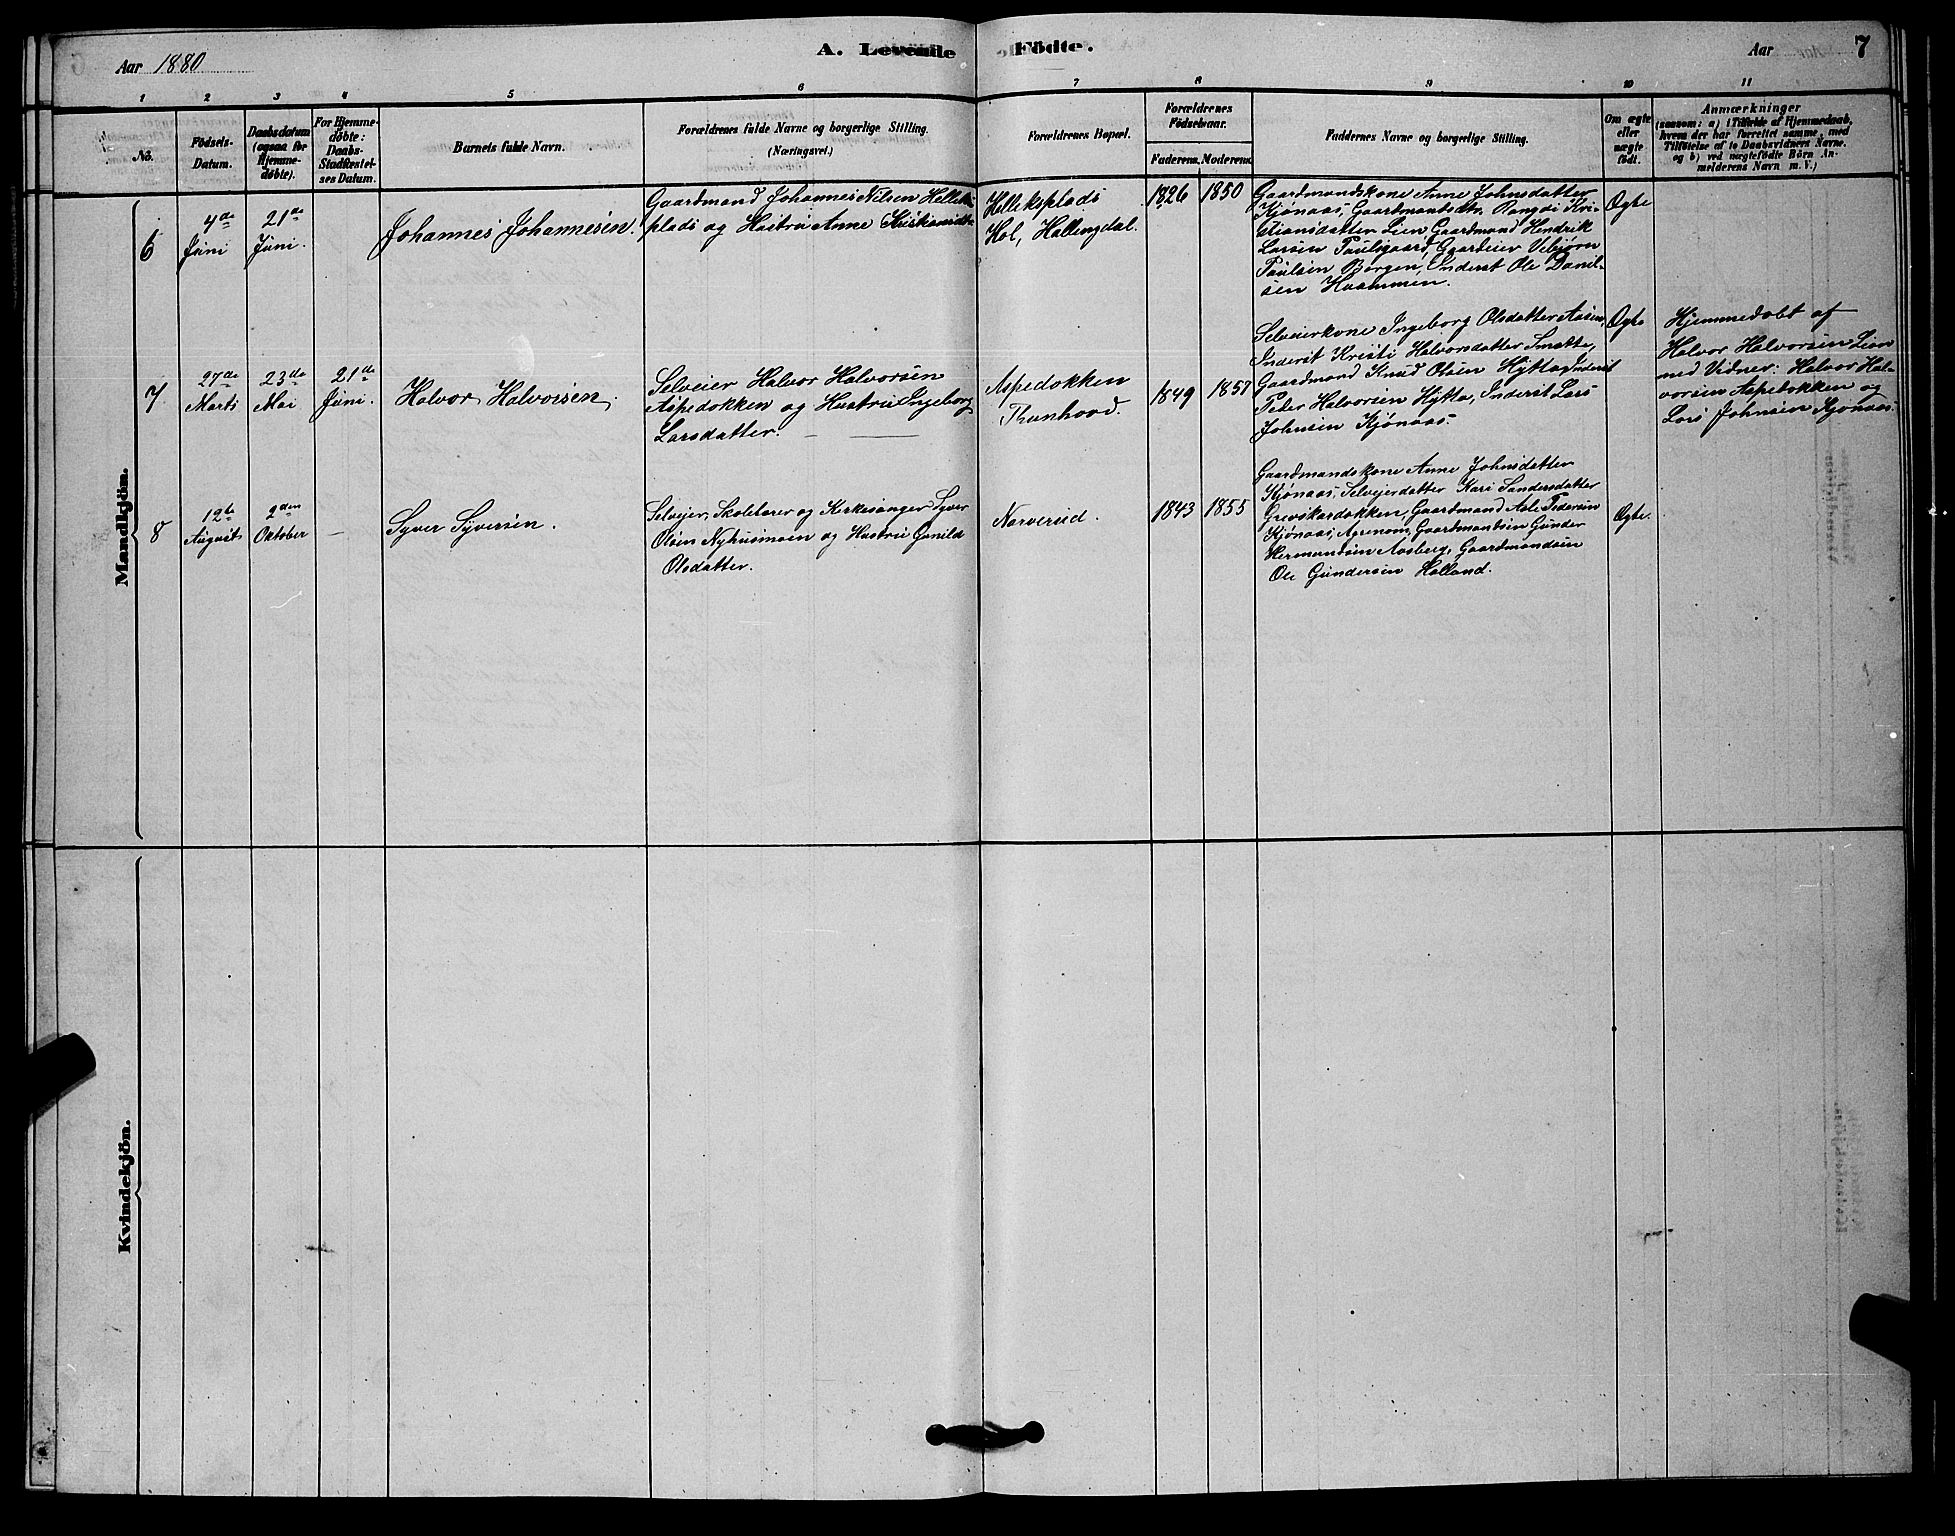 Aar 1880
A. Levende Födte.
Aar
7
1 2 3 4 5 6 7 8 9 10 11
No.
Födsels-
Datum.
Daabsdatum
(ogsaa for
Hjemme-
döbte).
For Hjemme-
döbte:
Daabs-
Stadfæstel-
ses Datum.
Barnets fulde Navn.
Forældrenes fulde Navne og borgerlige Stilling.
(Næringsvei.)
Forældrenes Bopæl.
Forældrenes
Födselsaar.
Faderens. Moderens.
Faddernes Navne og borgerlige Stilling.
Om ægte
eller
uægte
födt.
Anmærkninger
(saasom: a) i Tilfælde af Hjemmedaab,
hvem der har forrettet samme, med
Tilföielse af to Daabsvidners Navne.
og b) ved uægtefödte Börn An-
melderens Navn m. V.)
Mandkjön.
6
4de
Juni
21de
Juni.
Johannes Johannesen.
Gaardmand Johannes Nilsen Helleks
plads og Hustru Anne
Helleksplads
Hol, Hallingdal.
1826
1850
Gaardmandskone Anne Johnsdatter
Kjønaas, Gaardmandsdtr. Rangdi Kri-
stiansdatter Lien Gaardmand Hendrik
Larsen Paulsgaard, Gaardeier Vebjørn
Paulsen Børgen, Inderst Ole Danil-
sen Hvammen.
Ægte
7
27de
Marts
23de
Mai
21de
Juni.
Halvor Halvorsen.
Selveier Halvor Halvorsen
Aspedokken og Hustru Ingeborg
Larsdatter.
Aspedokken
Tunhovd.
1849
1857
Selveierkone Ingeborg Olsdatter Aasen,
Inderst Kristi Halvorsdatter Smette,
Gaardmand Knud Olsen Hytta, Inderst
Peder Halvorsen Hytta, Inderst Lars
Johnsen Kjønaas.
Ægte
Hjemmedøbt af
Halvor Halvorsen Lien
med Vidner: Halvor Hal-
vorsen Aspedokken og
Lars Johnsen Kjønaas.
8
12te
August
2den
Oktober
—
Syver Syversen.
Selveier, Skolelærer og Kirkesanger Syver
Olsen Nyhusmoen og Hustru Gunild
Olsdatter.
Norverud.
1843
1855
Gaardmandskone Anne Johnsdatter
Kjønaas, Selveierdatter Kari Sandersdatter
Grevskardokken, Gaardmand Asle Pedersen
Kjønaas, Agronom, Gaardmandsøn Gunder
Hermandsen Aasberg, Gaardmandsøn
Ole Gundersen Halland.
Ægte.
Kvindekjön.